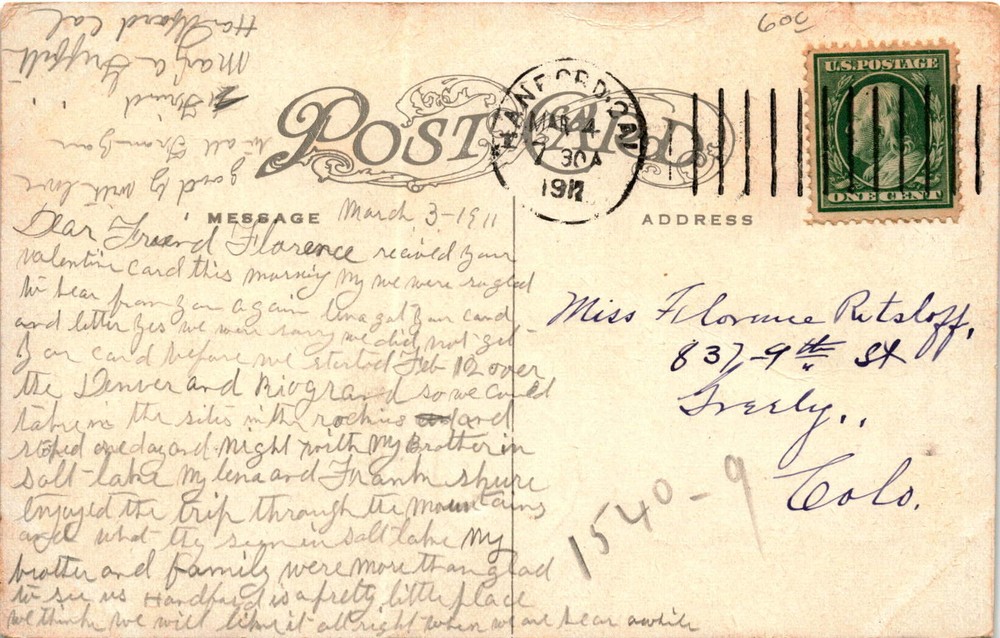 60c
POST CARD
HANFORD, CAL
MAR 4
7 30A
1911
U.S. POSTAGE
ONE CENT
MESSAGE
ADDRESS
March 3-1911
Dear Friend Florence recived your
valentine card this morning my we were so glad
to hear from you again lena got your card
and letter yes we were sorry we did not get
your card before we started Feb 12 over
the Denver and Riogrand so we could
take in the sites in the rockies and
stoped one day and night with My Brother in
Salt-lake My lena and Frank shure
enjoyed the trip through the mountains
and what they seen in salt lake My
brother and family were more than glad
to see us Handford is a pretty little place
we think we will like it all right when we are hear awhile
good by with love
to all from your
Friend
Mary a Griffith
Handford Cal
Miss Florence Retsloff,
837-9th St
Greely,
Colo.
1540-9